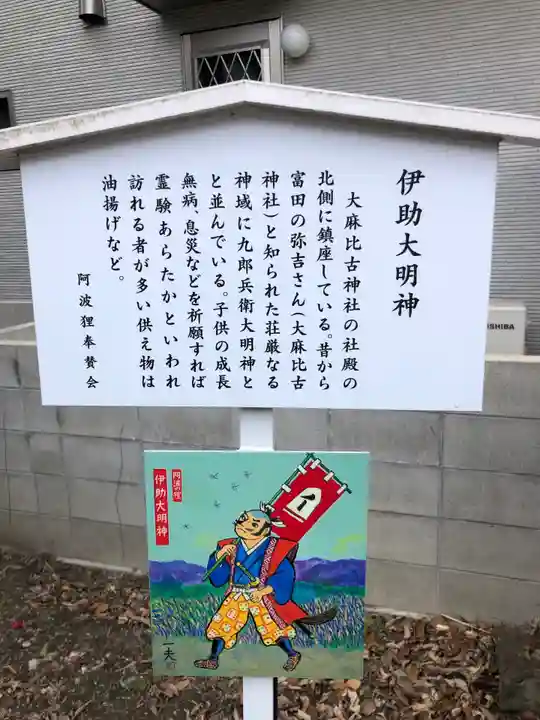 伊助大明神
大麻比古神社の社殿の
北側に鎮座している。昔から
富田の弥吉さん(大麻比古
神社)と知られた荘厳なる
神域に九郎兵衛大明神と
と並んでいる。子供の成長
無病、息災などを祈願すれば
霊験あらたかといわれ
訪れる者が多い供え物は
油揚げなど。
阿波狸奉賛会
阿波の狸
伊助大明神
一夫
SHIBA